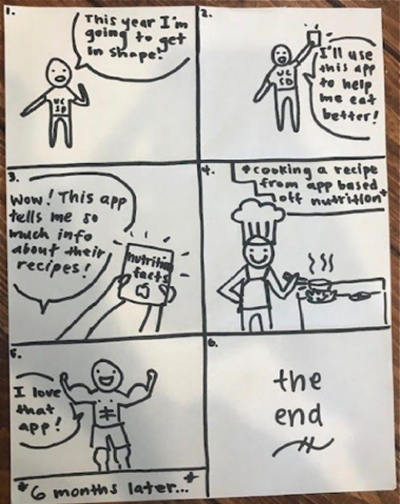 1.
This year I'm
going to get
in shape!
UC
SD
2.
I'll use
this app
to help
me eat
better!
UC
SD
3.
Wow! This app
tells me so
much info
about their
recipes!
nutrition
facts
4.
*cooking a recipe
from app based
off nutrition*
5.
I love
that
app!
*6 months later...*
6.
the
end